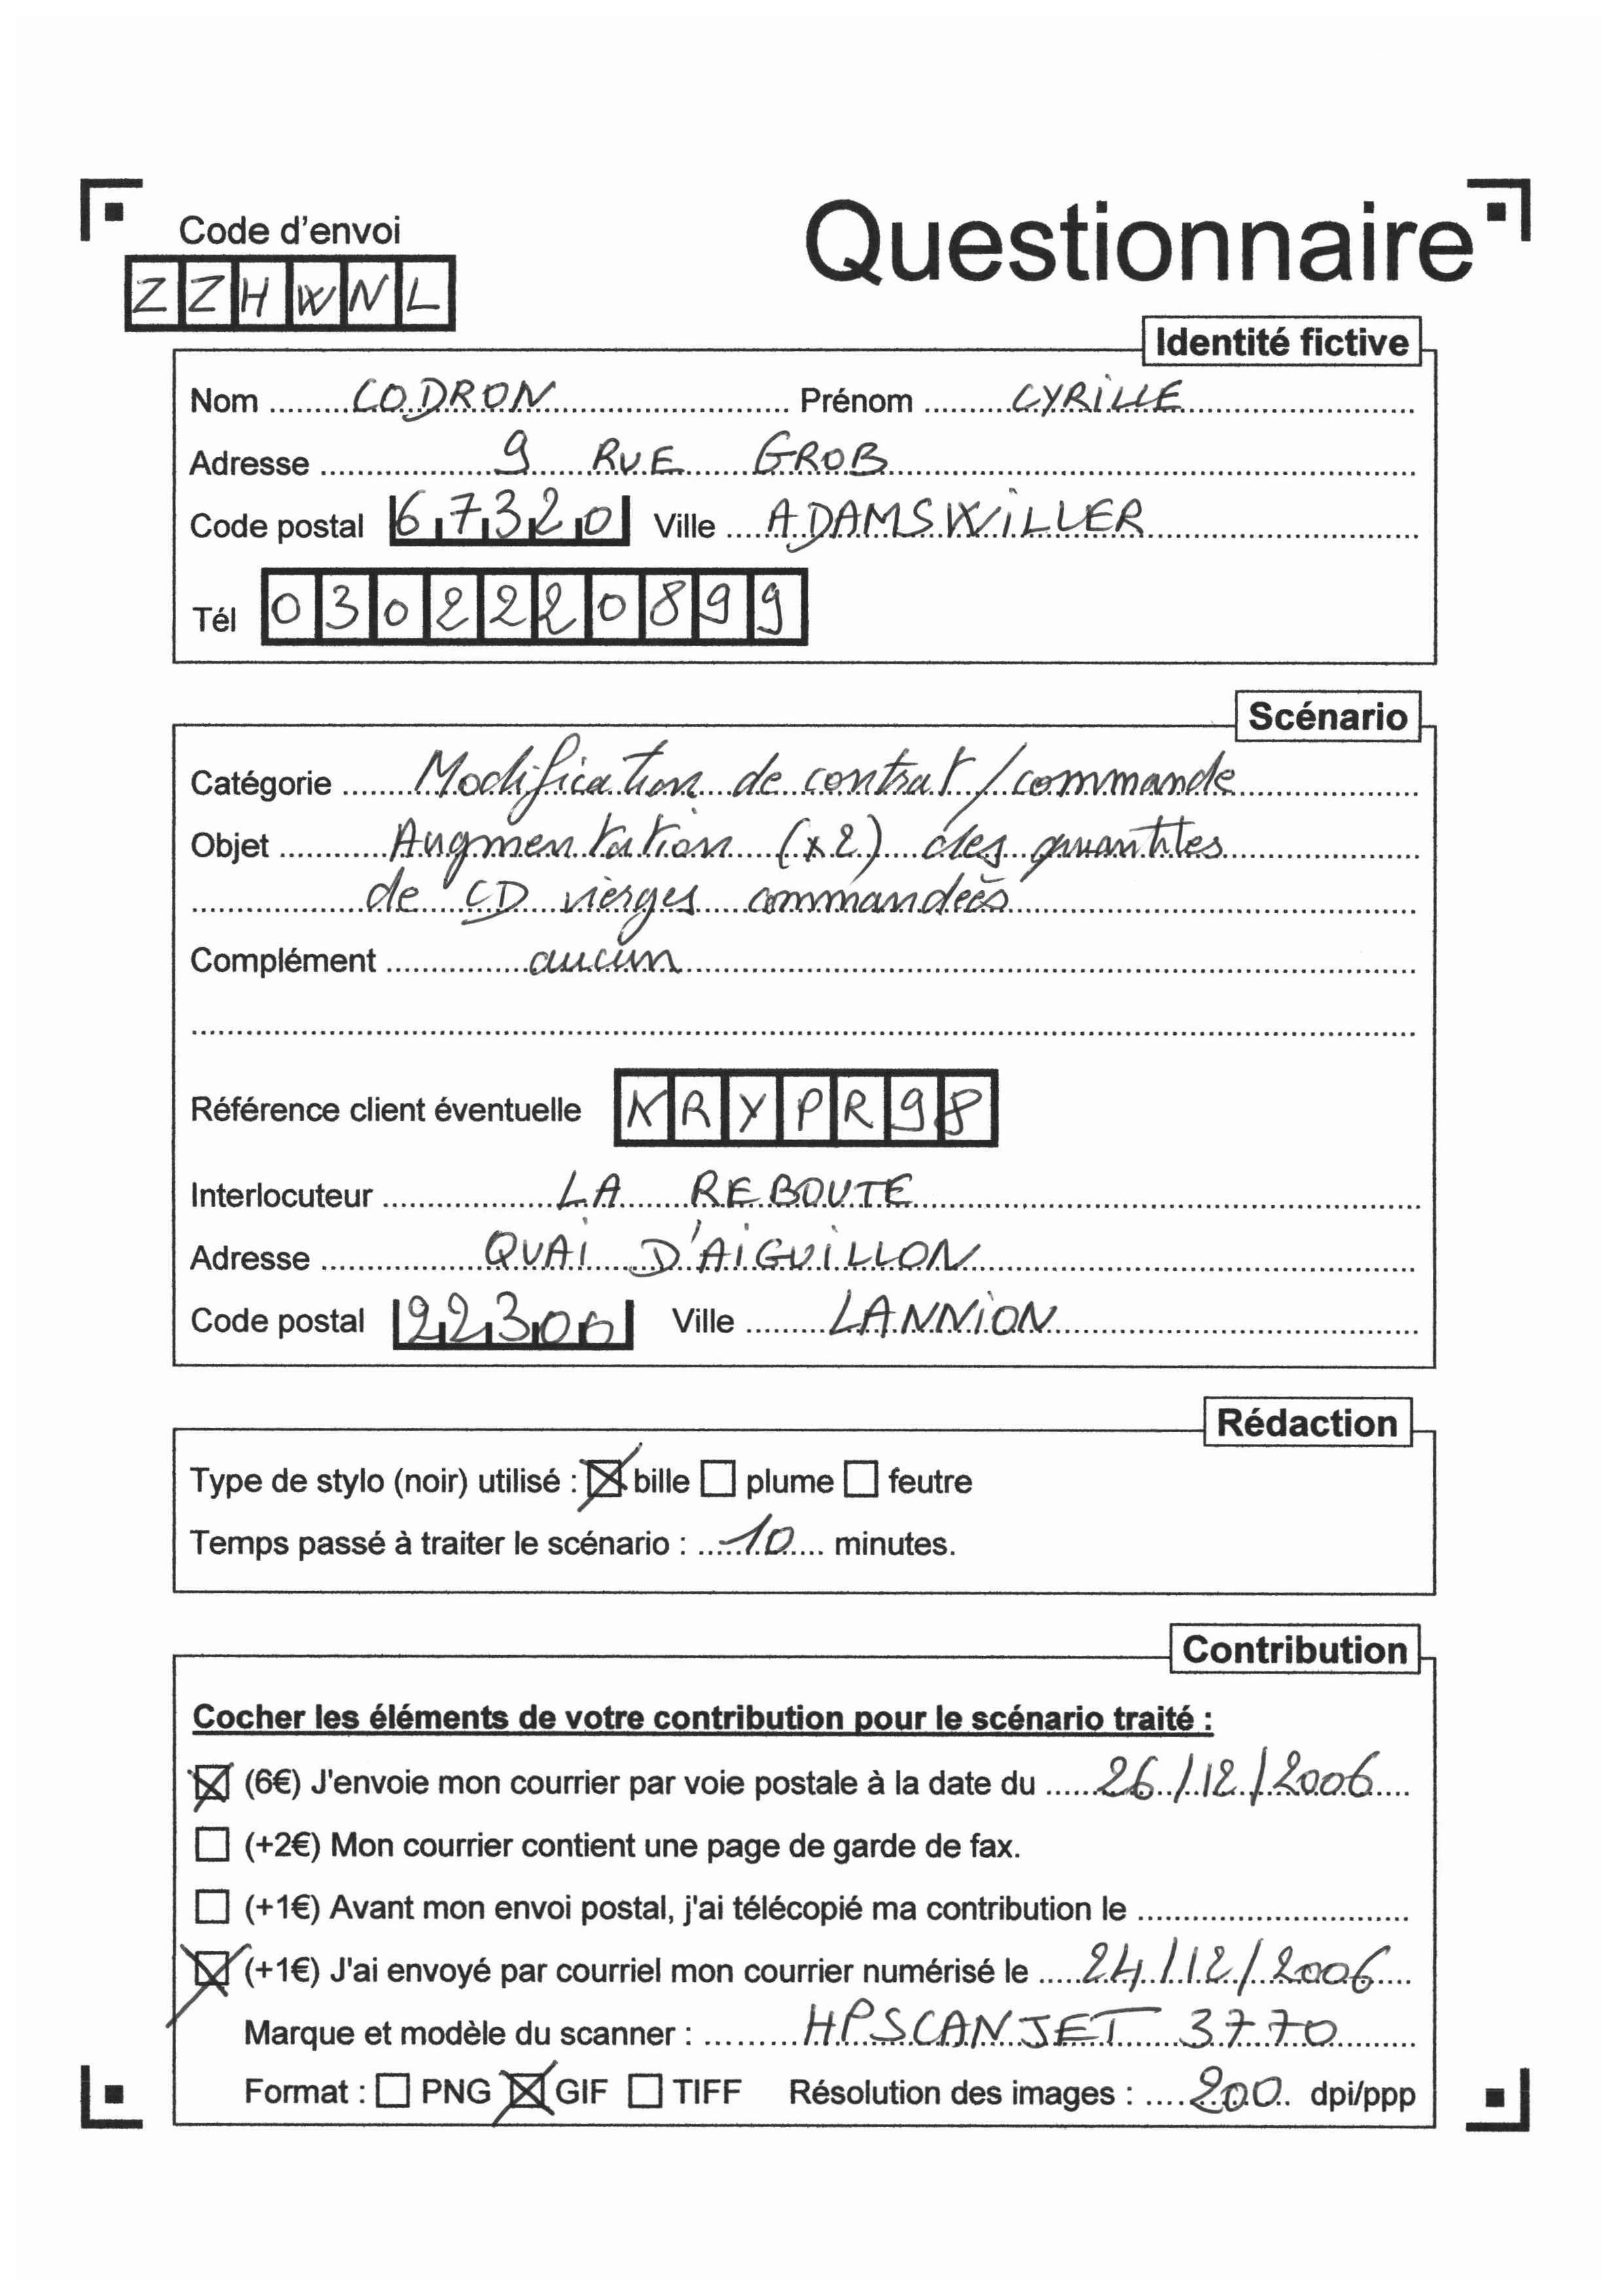 Code d'envoi
Questionnaire
ZZHWNL
Identité fictive
Nom CODRON Prénom CYRILLE
Adresse 9 RUE GROB
Code postal 67320 Ville ADAMSWILLER
Tél 0302220899
Scénario
Catégorie Modification de contrat/commande
Objet Augmentation (x2) des quantites
de CD vierges commandées
Complément aucun
Référence client éventuelle RYPR98
Interlocuteur LA REBOUTE
Adresse QUAI D'AIGUILLON
Code postal 22300 Ville LANNION
Rédaction
Type de stylo (noir) utilisé : bille plume feutre
Temps passé à traiter le scénario : 10 minutes.
Contribution
Cocher les éléments de votre contribution pour le scénario traité :
(6€) J'envoie mon courrier par voie postale à la date du 26/12/2006
(+2€) Mon courrier contient une page de garde de fax.
(+1€) Avant mon envoi postal, j'ai télécopié ma contribution le
(+1€) J'ai envoyé par courriel mon courrier numérisé le 24/12/2006
Marque et modèle du scanner : HPSCANJET 3770
Format : PNG GIF TIFF Résolution des images : 200 dpi/ppp